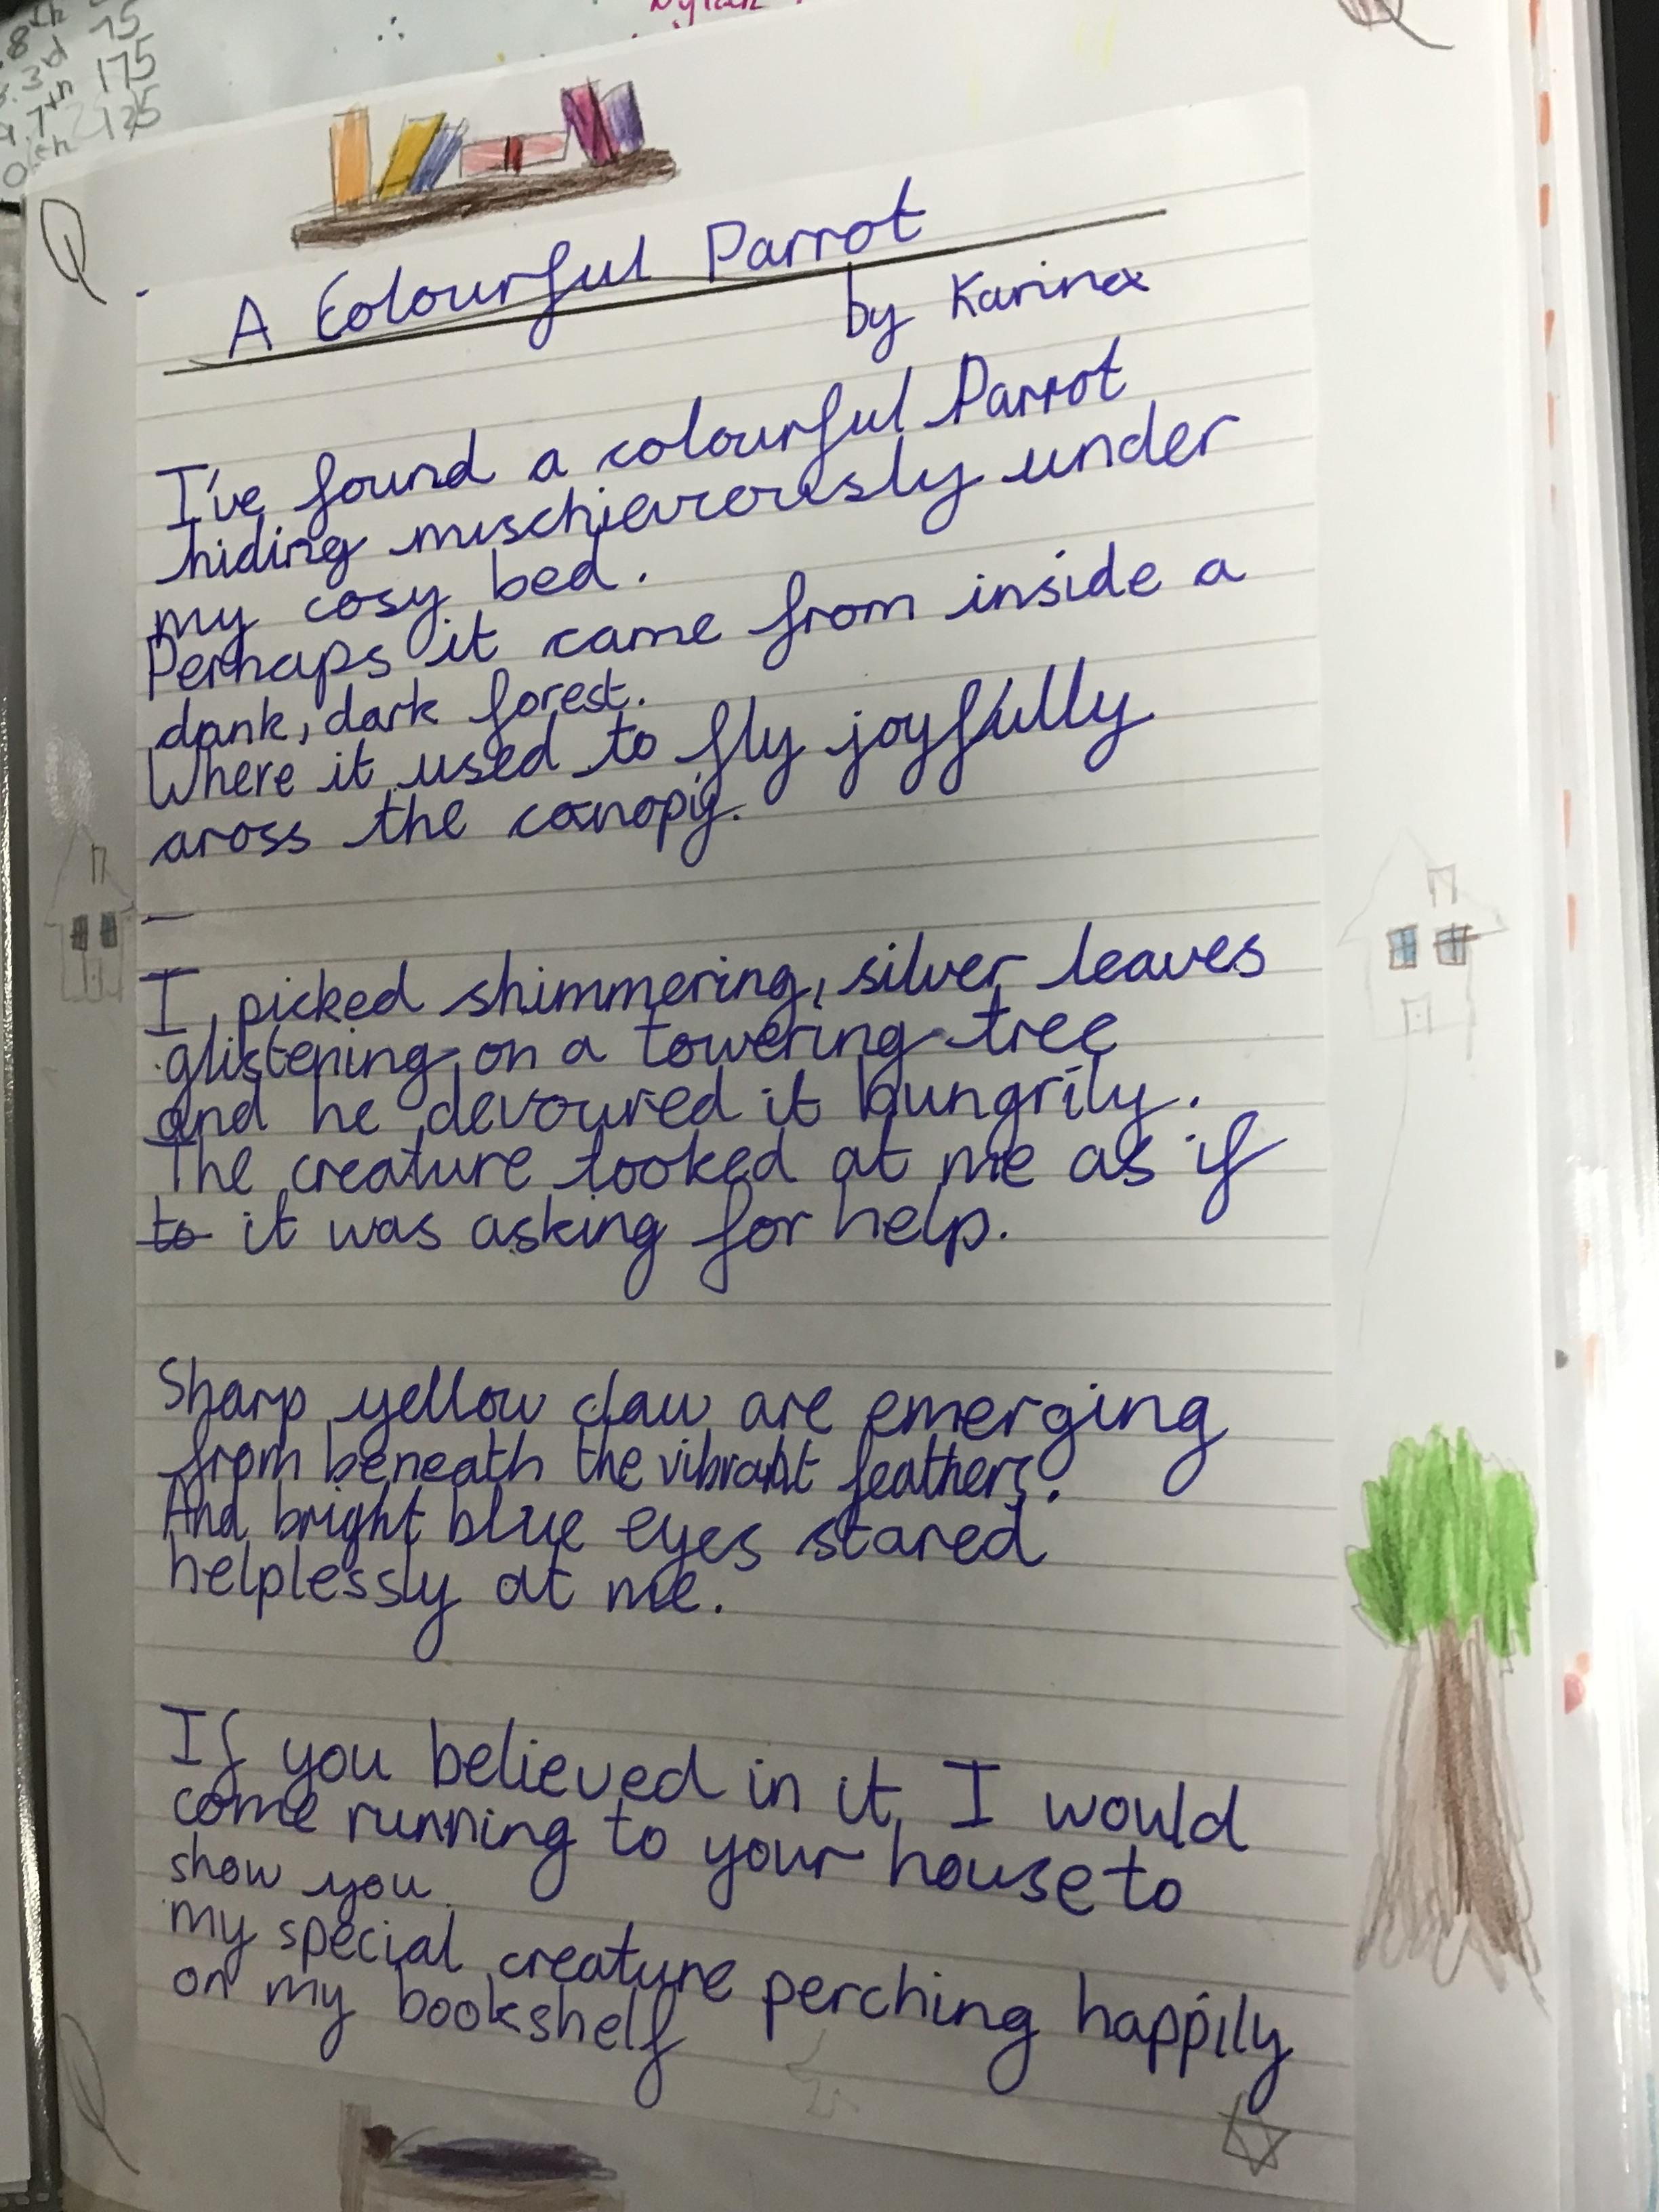 8th 75
3rd 175
7th 2125
A Colourful Parrot
by Karina
I've found a colourful Parrot
hiding mischievously under
my cosy bed.
Perhaps it came from inside a
dank, dark forest.
Where it used to fly joyfully
aross the canopy.
I picked shimmering, silver leaves
glistening on a towering tree
and he devoured it hungrily.
The creature looked at me as if
to it was asking for help.
Sharp yellow claw are emerging
from beneath the vibrant feathers.
And bright blue eyes stared
helplessly at me.
If you believed in it, I would
come running to your house to
show you
my special creature perching happily
on my bookshelf